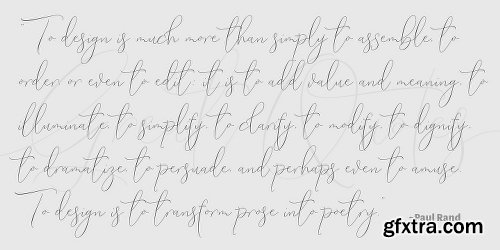 "To design is much more than simply to assemble, to
order, or even to edit; it is to add value and meaning, to
illuminate, to simplify, to clarify, to modify, to dignify,
to dramatize, to persuade, and perhaps even to amuse.
To design is to transform prose into poetry."
-Paul Rand
gfxtra.com